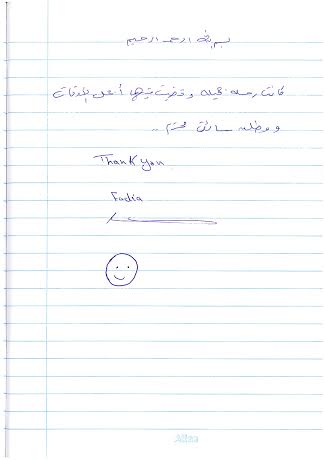 بسم الله الرحمن الرحيم
كانت رحلة جميلة وقضيت فيها أحلى الأوقات
وفضله سائق محترم ..
Thank you
Fadia